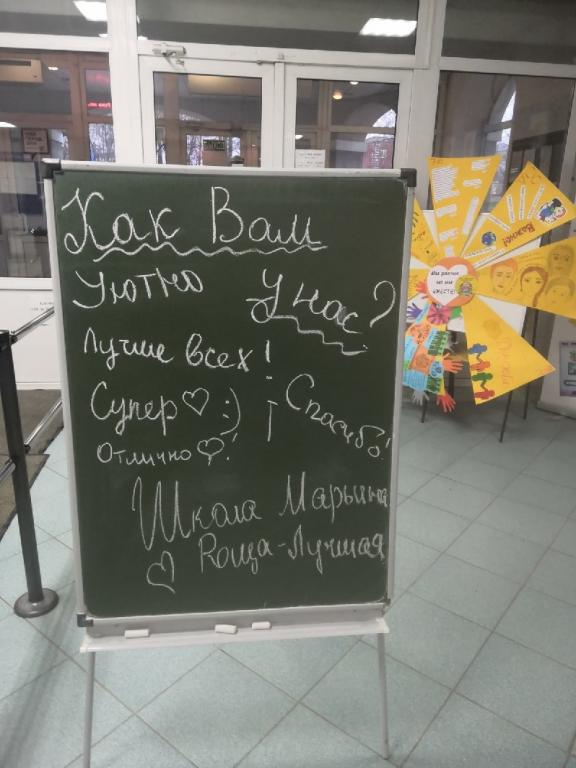 Как Вам
Уютно у нас?
Лучше всех!
Супер♡:)
Спасибо!
Отлично♡!
Школа Марьина
♡ Роща-Лучшая
Важно!
ВМЕСТЕ!